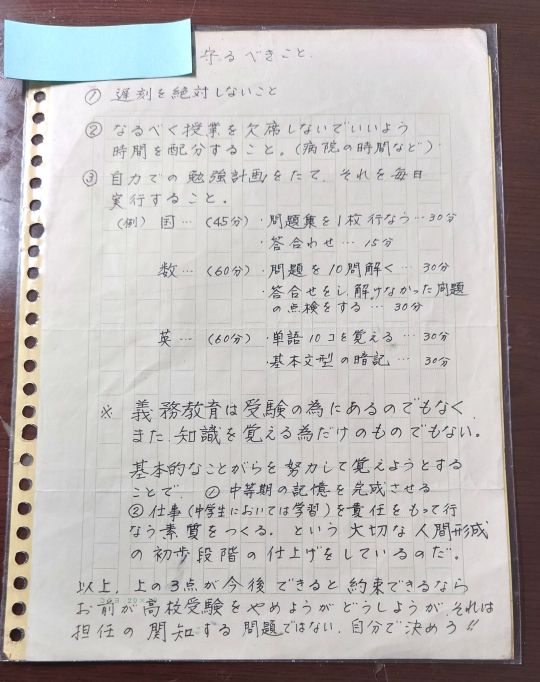 守るべきこと.
① 遅刻を絶対しないこと
② なるべく授業を欠席しないでいいよう
時間を配分すること。(病院の時間など)
③ 自力での勉強計画をたて、それを毎日
実行すること。
(例) 国… (45分)・問題集を1枚行なう…30分
・答合わせ… 15分
数… (60分)・問題を10問解く… 30分
・答合せをし、解けなかった問題
の点検をする… 30分
英… (60分)・単語10コを覚える… 30分
・基本文型の暗記… 30分
※ 義務教育は受験の為にあるのでもなく
また、知識を覚える為だけのものでもない。
基本的なことがらを努力して覚えようとする
ことで、①中等期の記憶を完成させる
②仕事(中学生においては学習)を責任をもって行
なう素質をつくる。という大切な人間形成
の初歩段階の仕上げをしているのだ。
以上、上の3点が今後できると約束できるなら
お前が高校受験をやめようがどうしようが、それは
担任の関知する問題ではない、自分で決めろ!!